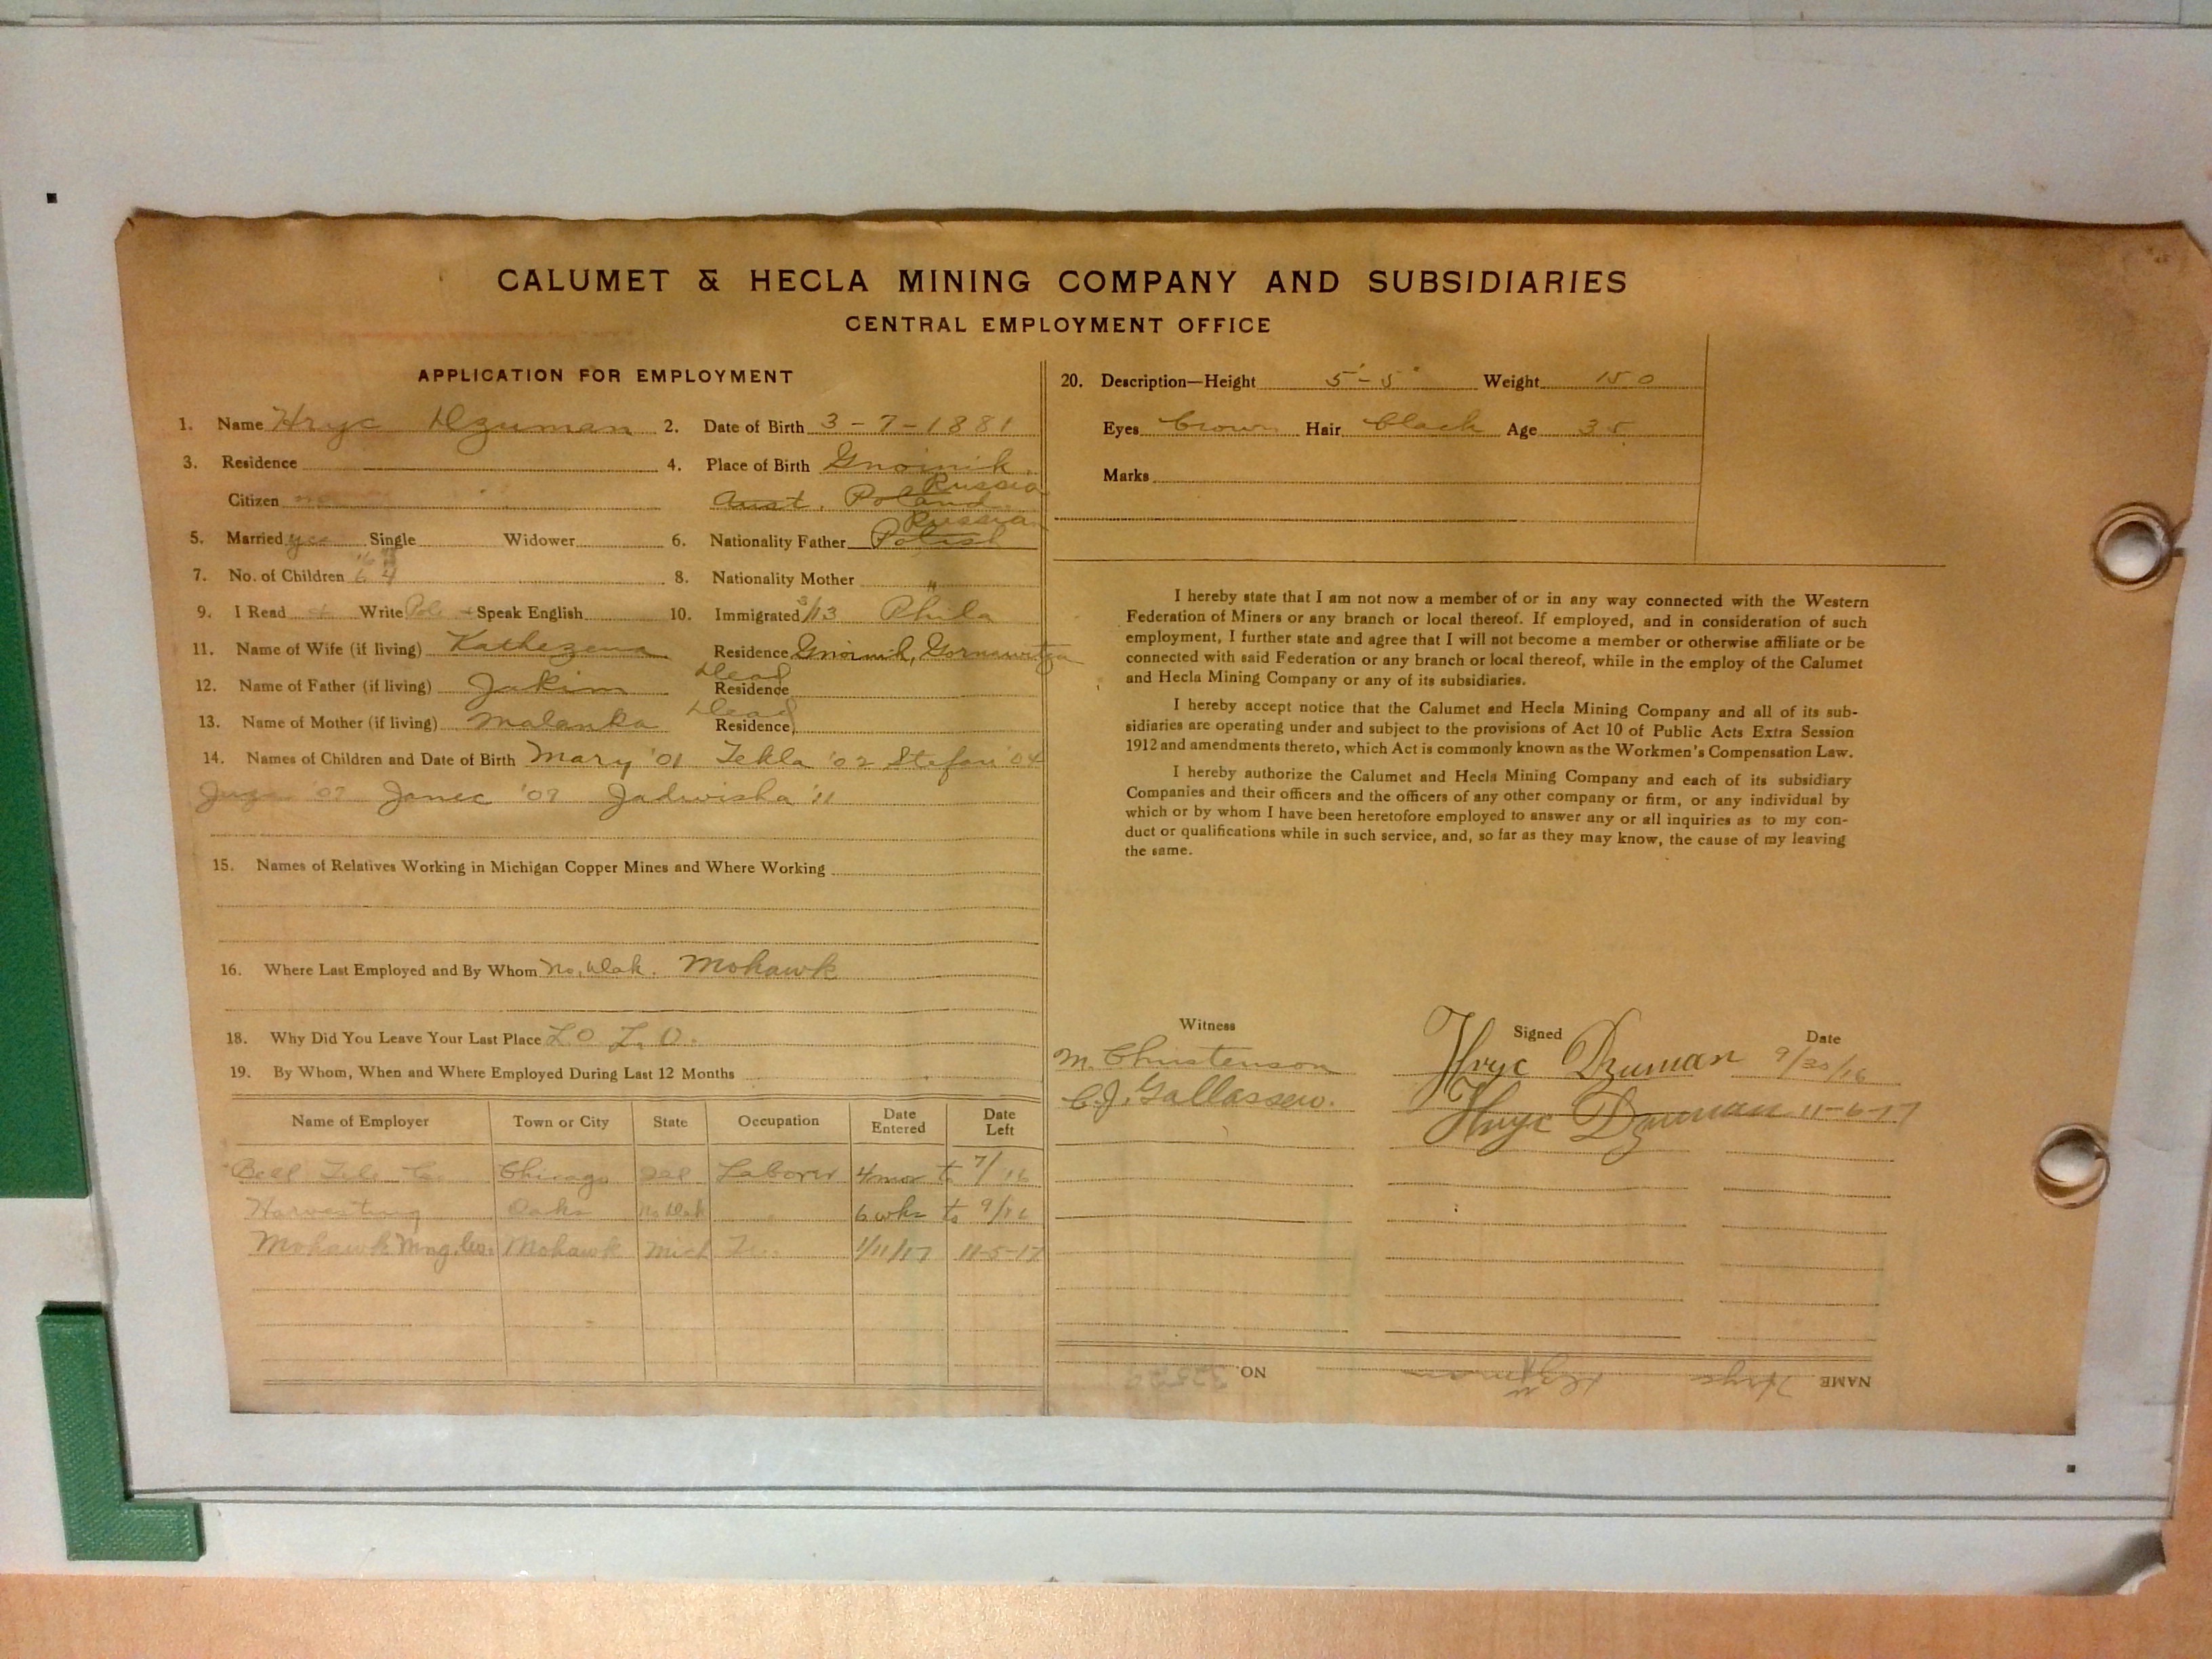 CALUMET & HECLA MINING COMPANY AND SUBSIDIARIES
CENTRAL EMPLOYMENT OFFICE
APPLICATION FOR EMPLOYMENT
1. Name Hryc Dzuman 2. Date of Birth 3-7-1881
3. Residence 4. Place of Birth Gnoinik,
Russia
Citizen no Aust. Poland
Russian
5. Married yes Single Widower 6. Nationality Father Polish
7. No. of Children 6 4 8. Nationality Mother "
9. I Read Write Pol Speak English 10. Immigrated 3/13 Phila
11. Name of Wife (if living) Kathezena Residence Gnoinik,
12. Name of Father (if living) Jakim Residence Dead
13. Name of Mother (if living) Malanka Residence Dead
14. Names of Children and Date of Birth Mary '01 Tekla '02 Stefan '04
07 Janec '09 Jadwisha '11
15. Names of Relatives Working in Michigan Copper Mines and Where Working
16. Where Last Employed and By Whom No. Dak. Mohawk
18. Why Did You Leave Your Last Place L O L. O.
19. By Whom, When and Where Employed During Last 12 Months
Name of Employer Town or City State Occupation Date Entered Date Left
Bell Tele Co. Chicago Ill Laborer 4 mos to 7/16
Harvesting Oaks No Dak " 6 wks to 9/16
Mohawk Mng. Co. Mohawk Mich Tr. 1/11/17 11-5-17
20. Description—Height 5'-5" Weight 150
Eyes brown Hair black Age 35
Marks
I hereby state that I am not now a member of or in any way connected with the Western
Federation of Miners or any branch or local thereof. If employed, and in consideration of such
employment, I further state and agree that I will not become a member or otherwise affiliate or be
connected with said Federation or any branch or local thereof, while in the employ of the Calumet
and Hecla Mining Company or any of its subsidiaries.
I hereby accept notice that the Calumet and Hecla Mining Company and all of its sub-
sidiaries are operating under and subject to the provisions of Act 10 of Public Acts Extra Session
1912 and amendments thereto, which Act is commonly known as the Workmen's Compensation Law.
I hereby authorize the Calumet and Hecla Mining Company and each of its subsidiary
Companies and their officers and the officers of any other company or firm, or any individual by
which or by whom I have been heretofore employed to answer any or all inquiries as to my con-
duct or qualifications while in such service, and, so far as they may know, the cause of my leaving
the same.
Witness Signed Date
M. Christenson Hryc Dzuman 9/30/16
C.J. Gallassew. Hryc Dzuman 11-6-17
NAME Hryc Dzuman NO.